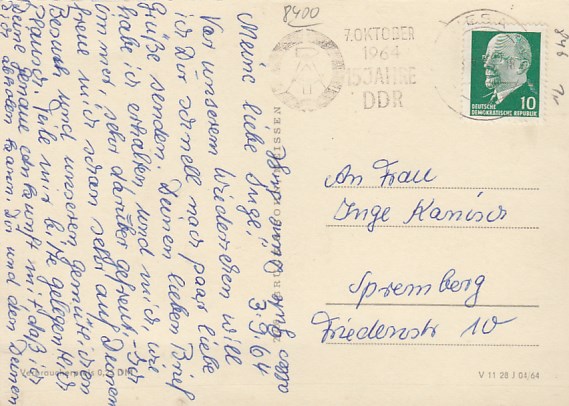 8400
7. OKTOBER
1964
15 JAHRE
DDR
DEUTSCHE
DEMOKRATISCHE REPUBLIK
10
846
3.9.64
Meine liebe Inge!
Vor unserem Wiedersehen will
ich Dir schnell noch paar liebe
Grüße senden. Deinen lieben Brief
habe ich erhalten und mich, wie
immer, sehr darüber gefreut. Ich
freue mich schon sehr auf Deinen
Besuch und unseren gemütlichen
Teile mir bitte
Deine genaue Ankunft mit, daß ich
Dich abholen kann. Dir und den Deinen
An Frau
Inge Kanisch
Spremberg
Friedensstr 10
Verbraucherpreis 0,20 DM
V 11 28 J 04/64